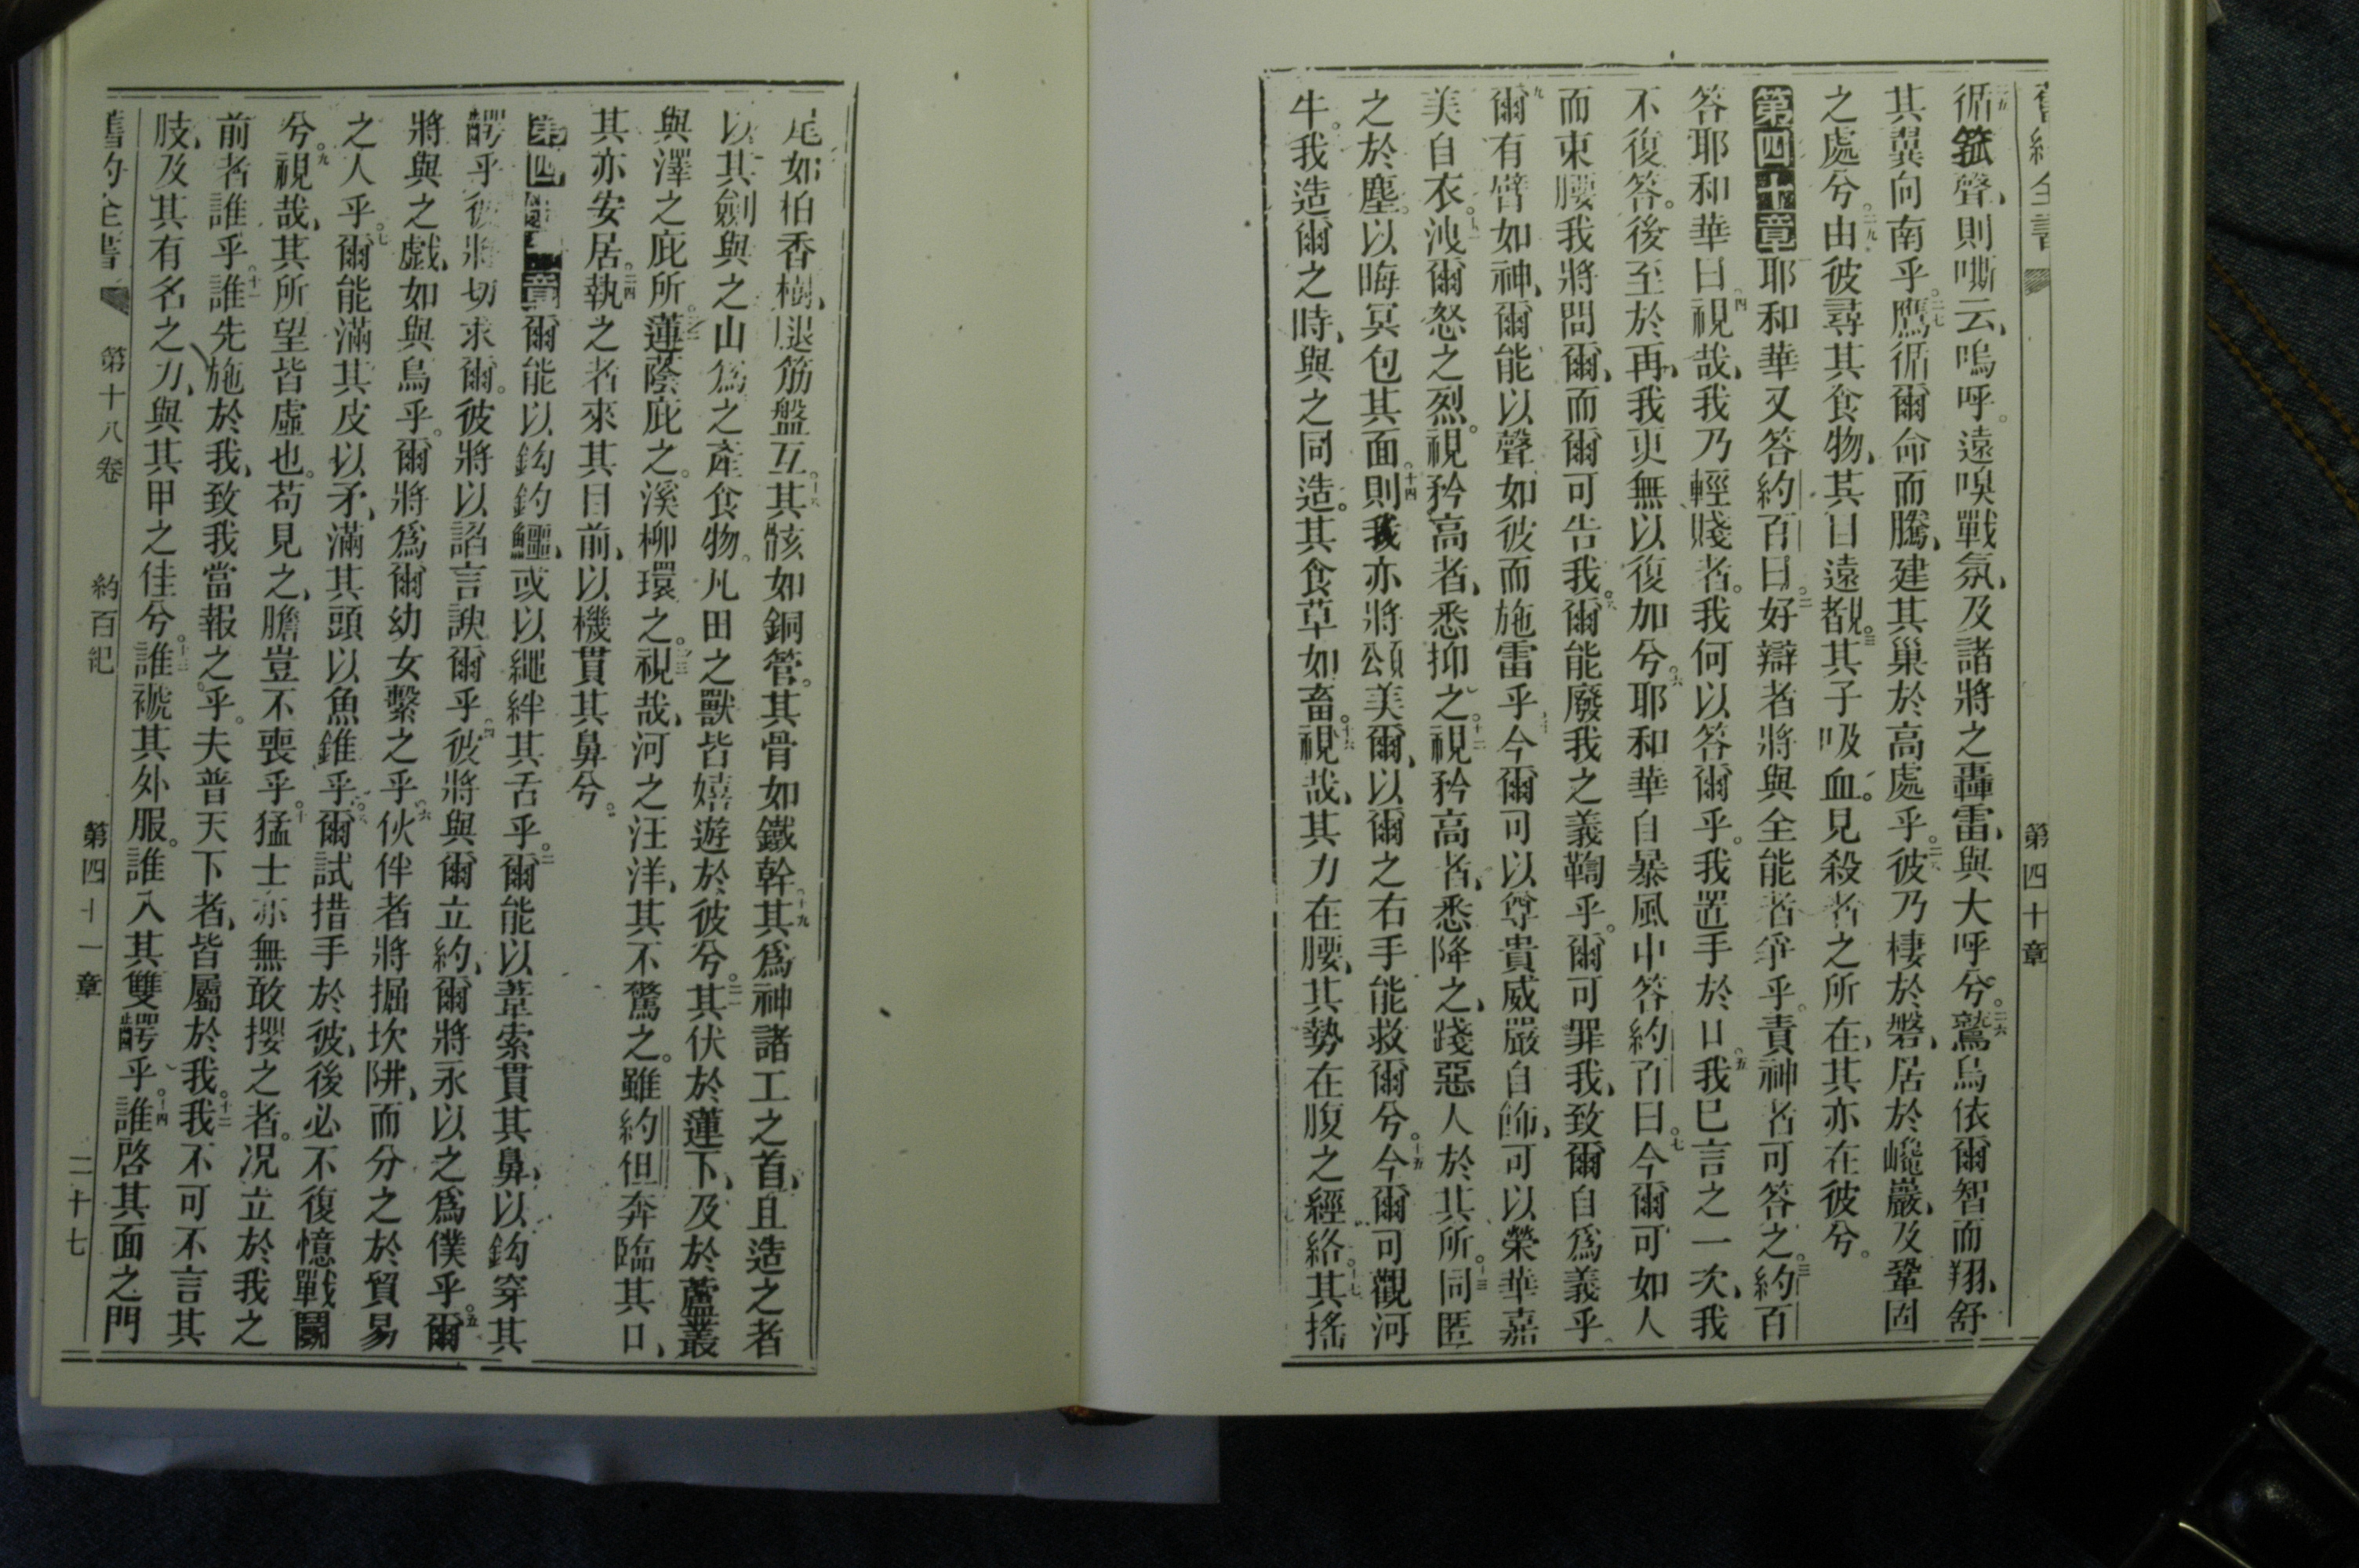 第四十章
循箛聲、則嘶云、嗚呼。遠嗅戰氛、及諸將之轟雷、與大呼兮。二六鷲鳥依爾智而翔、舒
其翼向南乎。二七鷹循爾命而騰、建其巢於高處乎。二八彼乃棲於磐、居於巉巖、及鞏固
之處兮。二九由彼尋其食物、其目遠覩。三十其子吸血。見殺者之所在、其亦在彼兮。
第四十章耶和華又答約百曰。二好辯者將與全能者爭乎。責神者可答之。三約百
答耶和華曰、四視哉、我乃輕賤者。我何以答爾乎。我置手於口。五我已言之一次、我
不復答。後至於再、我更無以復加兮。六耶和華自暴風中答約百曰。七今爾可如人
而束腰、我將問爾、而爾可告我。八爾能廢我之義鞫乎。爾可罪我、致爾自爲義乎。
九爾有臂如神、爾能以聲如彼而施雷乎。十今爾可以尊貴威嚴自飾、可以榮華嘉
美自衣。十一洩爾怒之烈。視矜高者、悉抑之。十二視矜高者、悉降之、踐惡人於其所。十三同匿
之於塵。以晦冥包其面。十四則我亦將頌美爾、以爾之右手能救爾兮。十五今爾可觀河
牛。我造爾之時、與之同造。其食草如畜。十六視哉、其力在腰、其勢在腹之經絡。十七其搖
尾如柏香樹、腿筋盤互。十八其骸如銅管。其骨如鐵幹。十九其爲神諸工之首、且造之者
以其劍與之。山爲之產食物。凡田之獸皆嬉遊於彼兮。二一其伏於蓮下、及於蘆叢
與澤之庇所。二二蓮蔭庇之。溪柳環之。二三視哉、河之汪洋、其不驚之。雖約但奔臨其口、
其亦安居。二四執之者來其目前、以機貫其鼻兮。
第四十一章爾能以鈎釣鱷、或以繩絆其舌乎。二爾能以葦索貫其鼻、以鈎穿其
齶乎。彼將切求爾。彼將以諂言諛爾乎。四彼將與爾立約、爾將永以之爲僕乎。五爾
將與之戲、如與鳥乎。爾將爲爾幼女繫之乎。六伙伴者將掘坎阱、而分之於貿易
之人乎。七爾能滿其皮以矛、滿其頭以魚錐乎。八爾試措手於彼、後必不復憶戰鬭
兮。九視哉、其所望皆虛也。苟見之、膽豈不喪乎。十猛士亦無敢攖之者。况立於我之
前者誰乎。十一誰先施於我、致我當報之乎。夫普天下者、皆屬於我。十二我不可不言其
肢、及其有名之力、與其甲之佳兮。十三誰褫其外服。誰入其雙齶乎。十四誰啓其面之門
舊約全書 第十八卷 約百紀 第四十一章 二十七